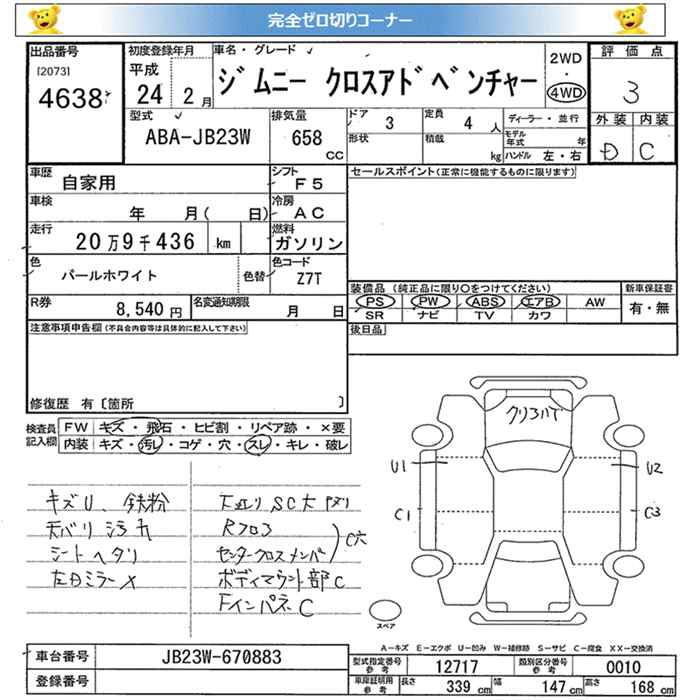 完全ゼロ切りコーナー
出品番号 初度登録年月 車名・グレード 2WD 評価点
[2073] 平成 ジムニー クロスアドベンチャー ・
4638 24 2月 4WD 3
型式 排気量 ドア 3 定員 4人 ディーラー・並行 外装 内装
ABA-JB23W 658 cc 形状 積載 kg モデル年式 年 D C
ハンドル 左・右
車歴 自家用 シフト F5 セールスポイント(正常に機能するものに限ります)
車検 年 月( 日) 冷房 AC
走行 20万9千436 km 燃料 ガソリン
色 パールホワイト 色替 色コード Z7T
装備品(純正品に限り○をつけてください) 新車保証書
R券 8,540円 名変通知期限 月 日 PS PW ABS エアB AW 有・無
SR ナビ TV カワ
注意事項申告欄(不具合内容等は具体的に記入して下さい) 後日品
修復歴 有〔箇所 〕
検査員記入欄 FW キズ・飛石・ヒビ割・リペア跡・×要
内装 キズ・汚れ・コゲ・穴・スレ・キレ・破レ
クリコバゲ
U1 U2
C1 C3
キズU、鉄粉 下廻りSC大
天バリ汚れ Rフロア
シートヘタリ センタークロスメンバ C穴
左Dミラー× ボディマウント部C
FインパネC
スペア
A-キズ E-エクボ U-凹み W-補修跡 S-サビ C-腐食 XX-交換済
車台番号 JB23W-670883 型式指定番号 参考 12717 類別区分番号 参考 0010
登録番号 車庫証明用 参考 長さ 339cm 幅 147cm 高さ 168cm